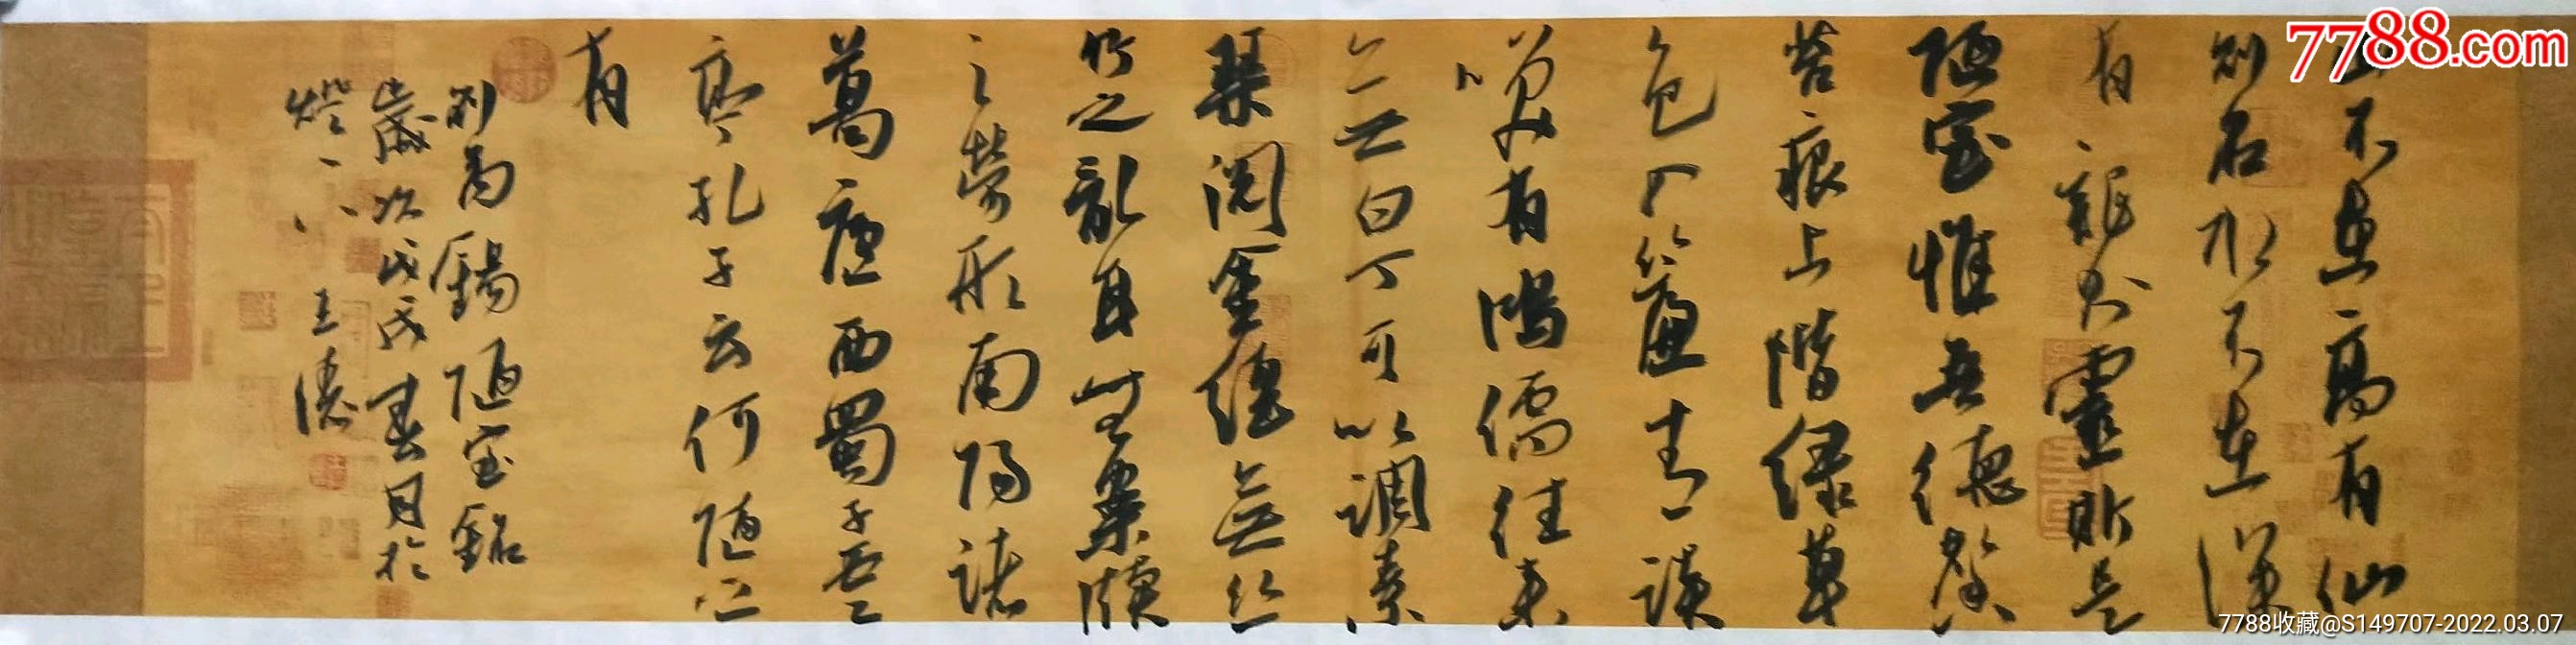 山不在高有仙
則名水不在深
有龍則靈斯是
陋室惟吾德馨
苔痕上階緑草
色入簾青談
笑有鴻儒往来
無白丁可以調素
琴閲金經無丝
竹之亂耳無案牘
之勞形南陽諸
葛廬西蜀子雲
亭孔子云何陋之
有
劉禹錫陋室銘
歲次戊戌春月於
燈下 王
7788.com
7788收藏@S149707-2022.03.07